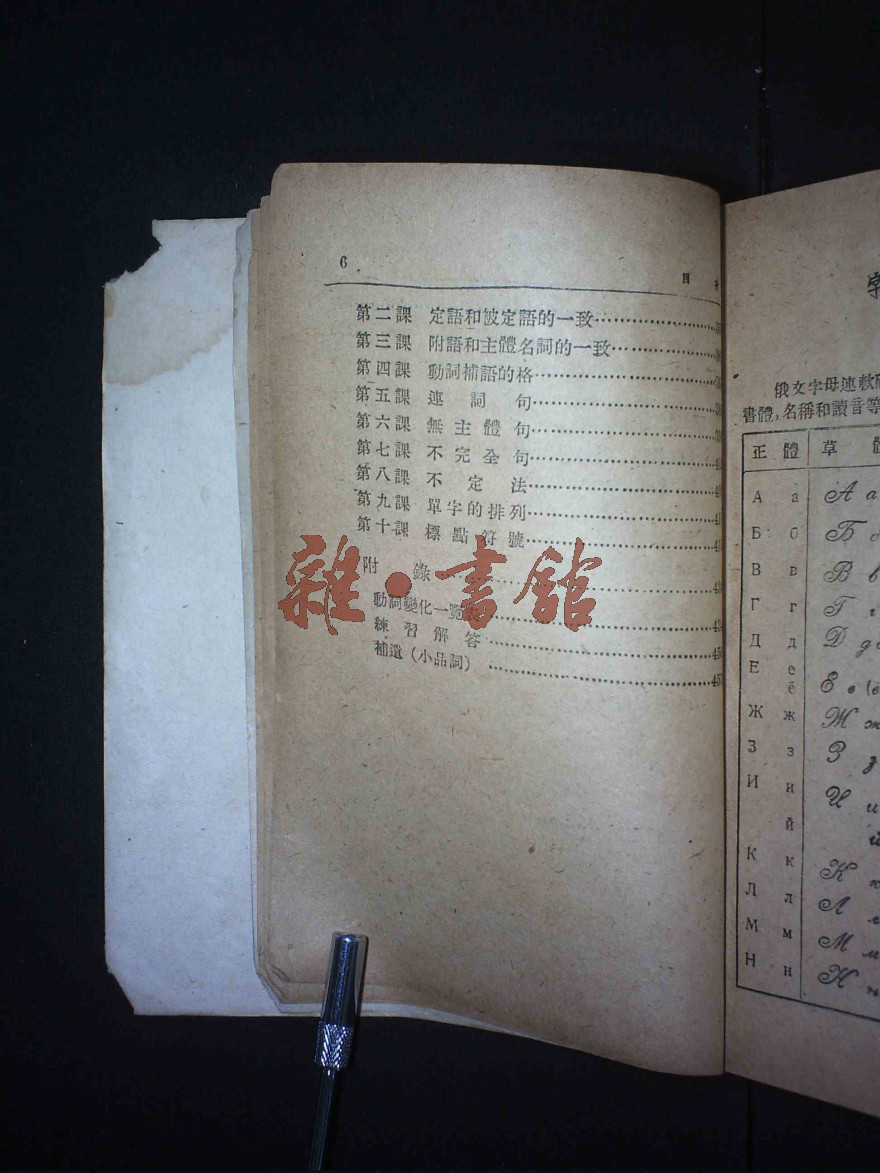 6
目
第二課 定語和被定語的一致
第三課 附語和主體名詞的一致
第四課 動詞補語的格
第五課 連詞句
第六課 無主體句
第七課 不完全句
第八課 不定法
第九課 單字的排列
第十課 標點符號
附錄
動詞變化一覽表
練習解答
補遺(小品詞)
雜·書館
俄文字母連軟
書體,名稱和讀音等
正體 草體
А а А а
Б б Б
В в В в
Г г Г г
Д д Д д
Е е
ё Е е
Ж ж Ж ж
З з З з
И и И и
й й
К к К к
Л л Л л
М м М м
Н н Н н